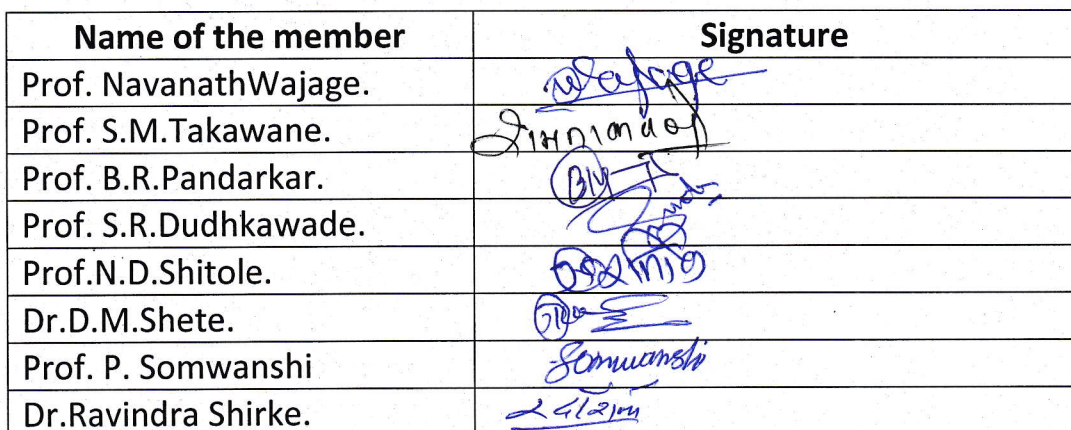 Name of the member Signature
Prof. NavanathWajage. Wajage
Prof. S.M.Takawane.
Prof. B.R.Pandarkar.
Prof. S.R.Dudhkawade.
Prof.N.D.Shitole.
Dr.D.M.Shete.
Prof. P. Somwanshi Somwanshi
Dr.Ravindra Shirke.